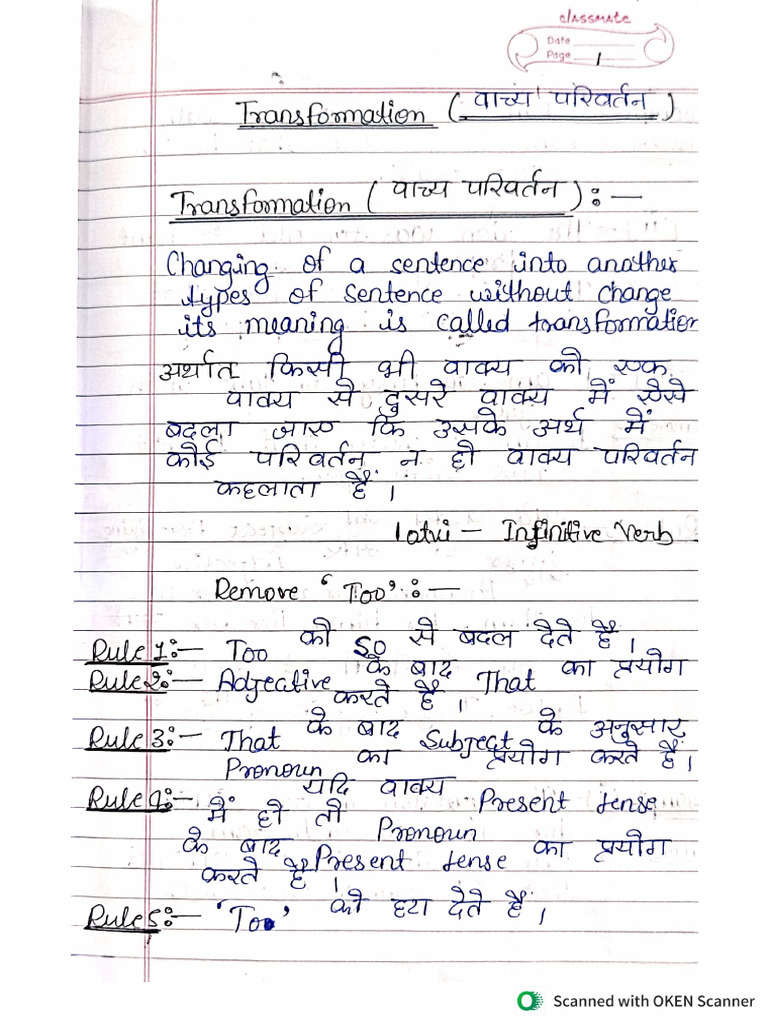 classmate
Date
Page 1
Transformation ( वाच्य परिवर्तन )
Transformation ( वाच्य परिवर्तन ) :—
Changing of a sentence into another
types of sentence without change
its meaning is called transformation
अर्थात किसी भी वाक्य को एक
वाक्य से दुसरे वाक्य में ऐसे
बदला जाए कि उसके अर्थ में
कोई परिवर्तन न हो वाक्य परिवर्तन
कहलाता हैं ।
Infinitive Verb
Remove ‘Too’ :—
Rule 1:— Too को So से बदल देते हैं ।
Rule 2:— Adjective के बाद That का प्रयोग
करते हैं ।
Rule 3:— That के बाद Subject के अनुसार
Pronoun का प्रयोग करते हैं ।
Rule 4:— यदि वाक्य Present tense
में हो तो Pronoun
के बाद Present tense का प्रयोग
करते हैं ।
Rule 5:— ‘Too’ को हटा देते हैं ।
Scanned with OKEN Scanner